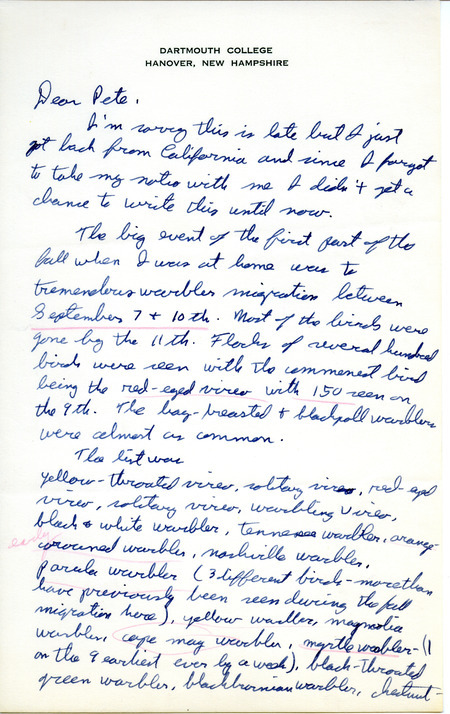 DARTMOUTH COLLEGE
HANOVER, NEW HAMPSHIRE
Dear Pete,
I'm sorry this is late but I just
got back from California and since I forgot
to take my notes with me I didn't get a
chance to write this until now.
The big event of the first part of the
fall when I was at home was the
tremendous warbler migration between
September 7 + 10th. Most of the birds were
gone by the 11th. Flocks of several hundred
birds were seen with the commenest bird
being the red-eyed vireo with 150 seen on
the 9th. The bay-breasted + blackpoll warblers
were almost as common.
The list was
yellow-throated vireo, solitary vireo, red-eyed
vireo, solitary vireo, warbling vireo,
black + white warbler, tennessee warbler, orange-
early
crowned warbler, nashville warbler,
parula warbler (3 different birds - more than
have previously been seen during the fall
migration here), yellow warbler, magnolia
warbler, cape may warbler, myrtle warbler - (1
on the 9 earliest ever by a week), black-throated
green warbler, blackburnian warbler, chestnut-